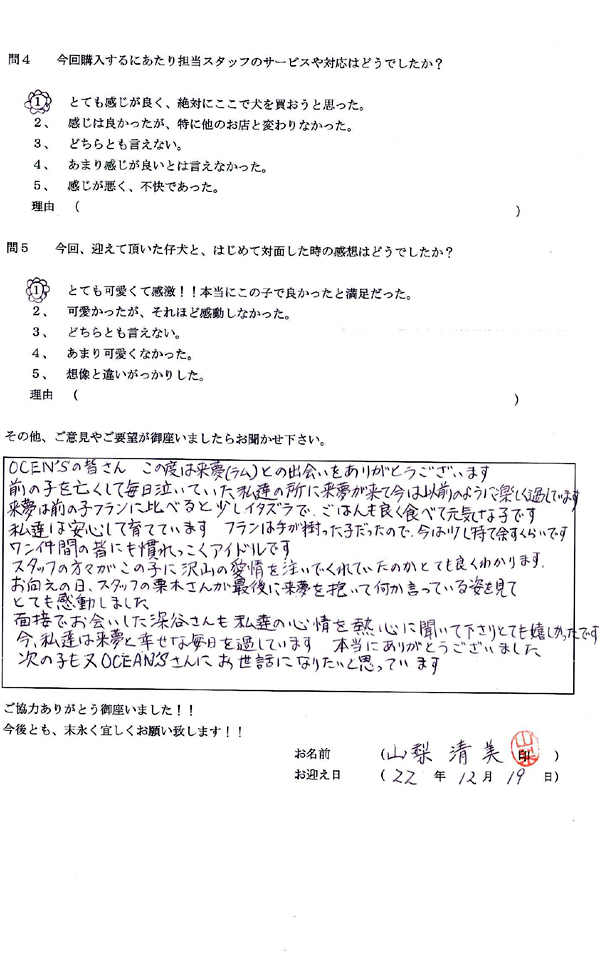 問4　今回購入するにあたり担当スタッフのサービスや対応はどうでしたか？
1　とても感じが良く、絶対にここで犬を買おうと思った。
2、感じは良かったが、特に他のお店と変わりなかった。
3、どちらとも言えない。
4、あまり感じが良いとは言えなかった。
5、感じが悪く、不快であった。
理由　(　)
問5　今回、迎えて頂いた仔犬と、はじめて対面した時の感想はどうでしたか？
1　とても可愛くて感激！！本当にこの子で良かったと満足だった。
2、可愛かったが、それほど感動しなかった。
3、どちらとも言えない。
4、あまり可愛くなかった。
5、想像と違いがっかりした。
理由　(　)
その他、ご意見やご要望が御座いましたらお聞かせ下さい。
OCEN'Sの皆さん　この度は来夢(ラム)との出会いをありがとうございます
前の子を亡くして毎日泣いていた私達の所に来夢が来て今は以前のように楽しく過しています
来夢は前の子フランに比べると少しイタズラで、ごはんも良く食べて元気な子です
私達は安心して育てています　フランは手が掛った子だったので、今は少し持て余すくらいです
ワン仲間の皆にも慣れっこくアイドルです
スタッフの方々がこの子に沢山の愛情を注いでくれていたのかとても良くわかります.
お向えの日、スタッフの栗木さんが最後に来夢を抱いて何か言っている姿を見て
とても感動しました
面接でお会いした深谷さんも私達の心情を熱心に聞いて下さりとても嬉しかったです
今、私達は来夢と幸せな毎日を過しています　本当にありがとうございました
次の子も又OCEAN'Sさんにお世話になりたいと思っています
ご協力ありがとう御座いました！！
今後とも、末永く宜しくお願い致します！！
お名前　(山梨 清美　印　)
お迎え日　(22 年 12 月 19 日)